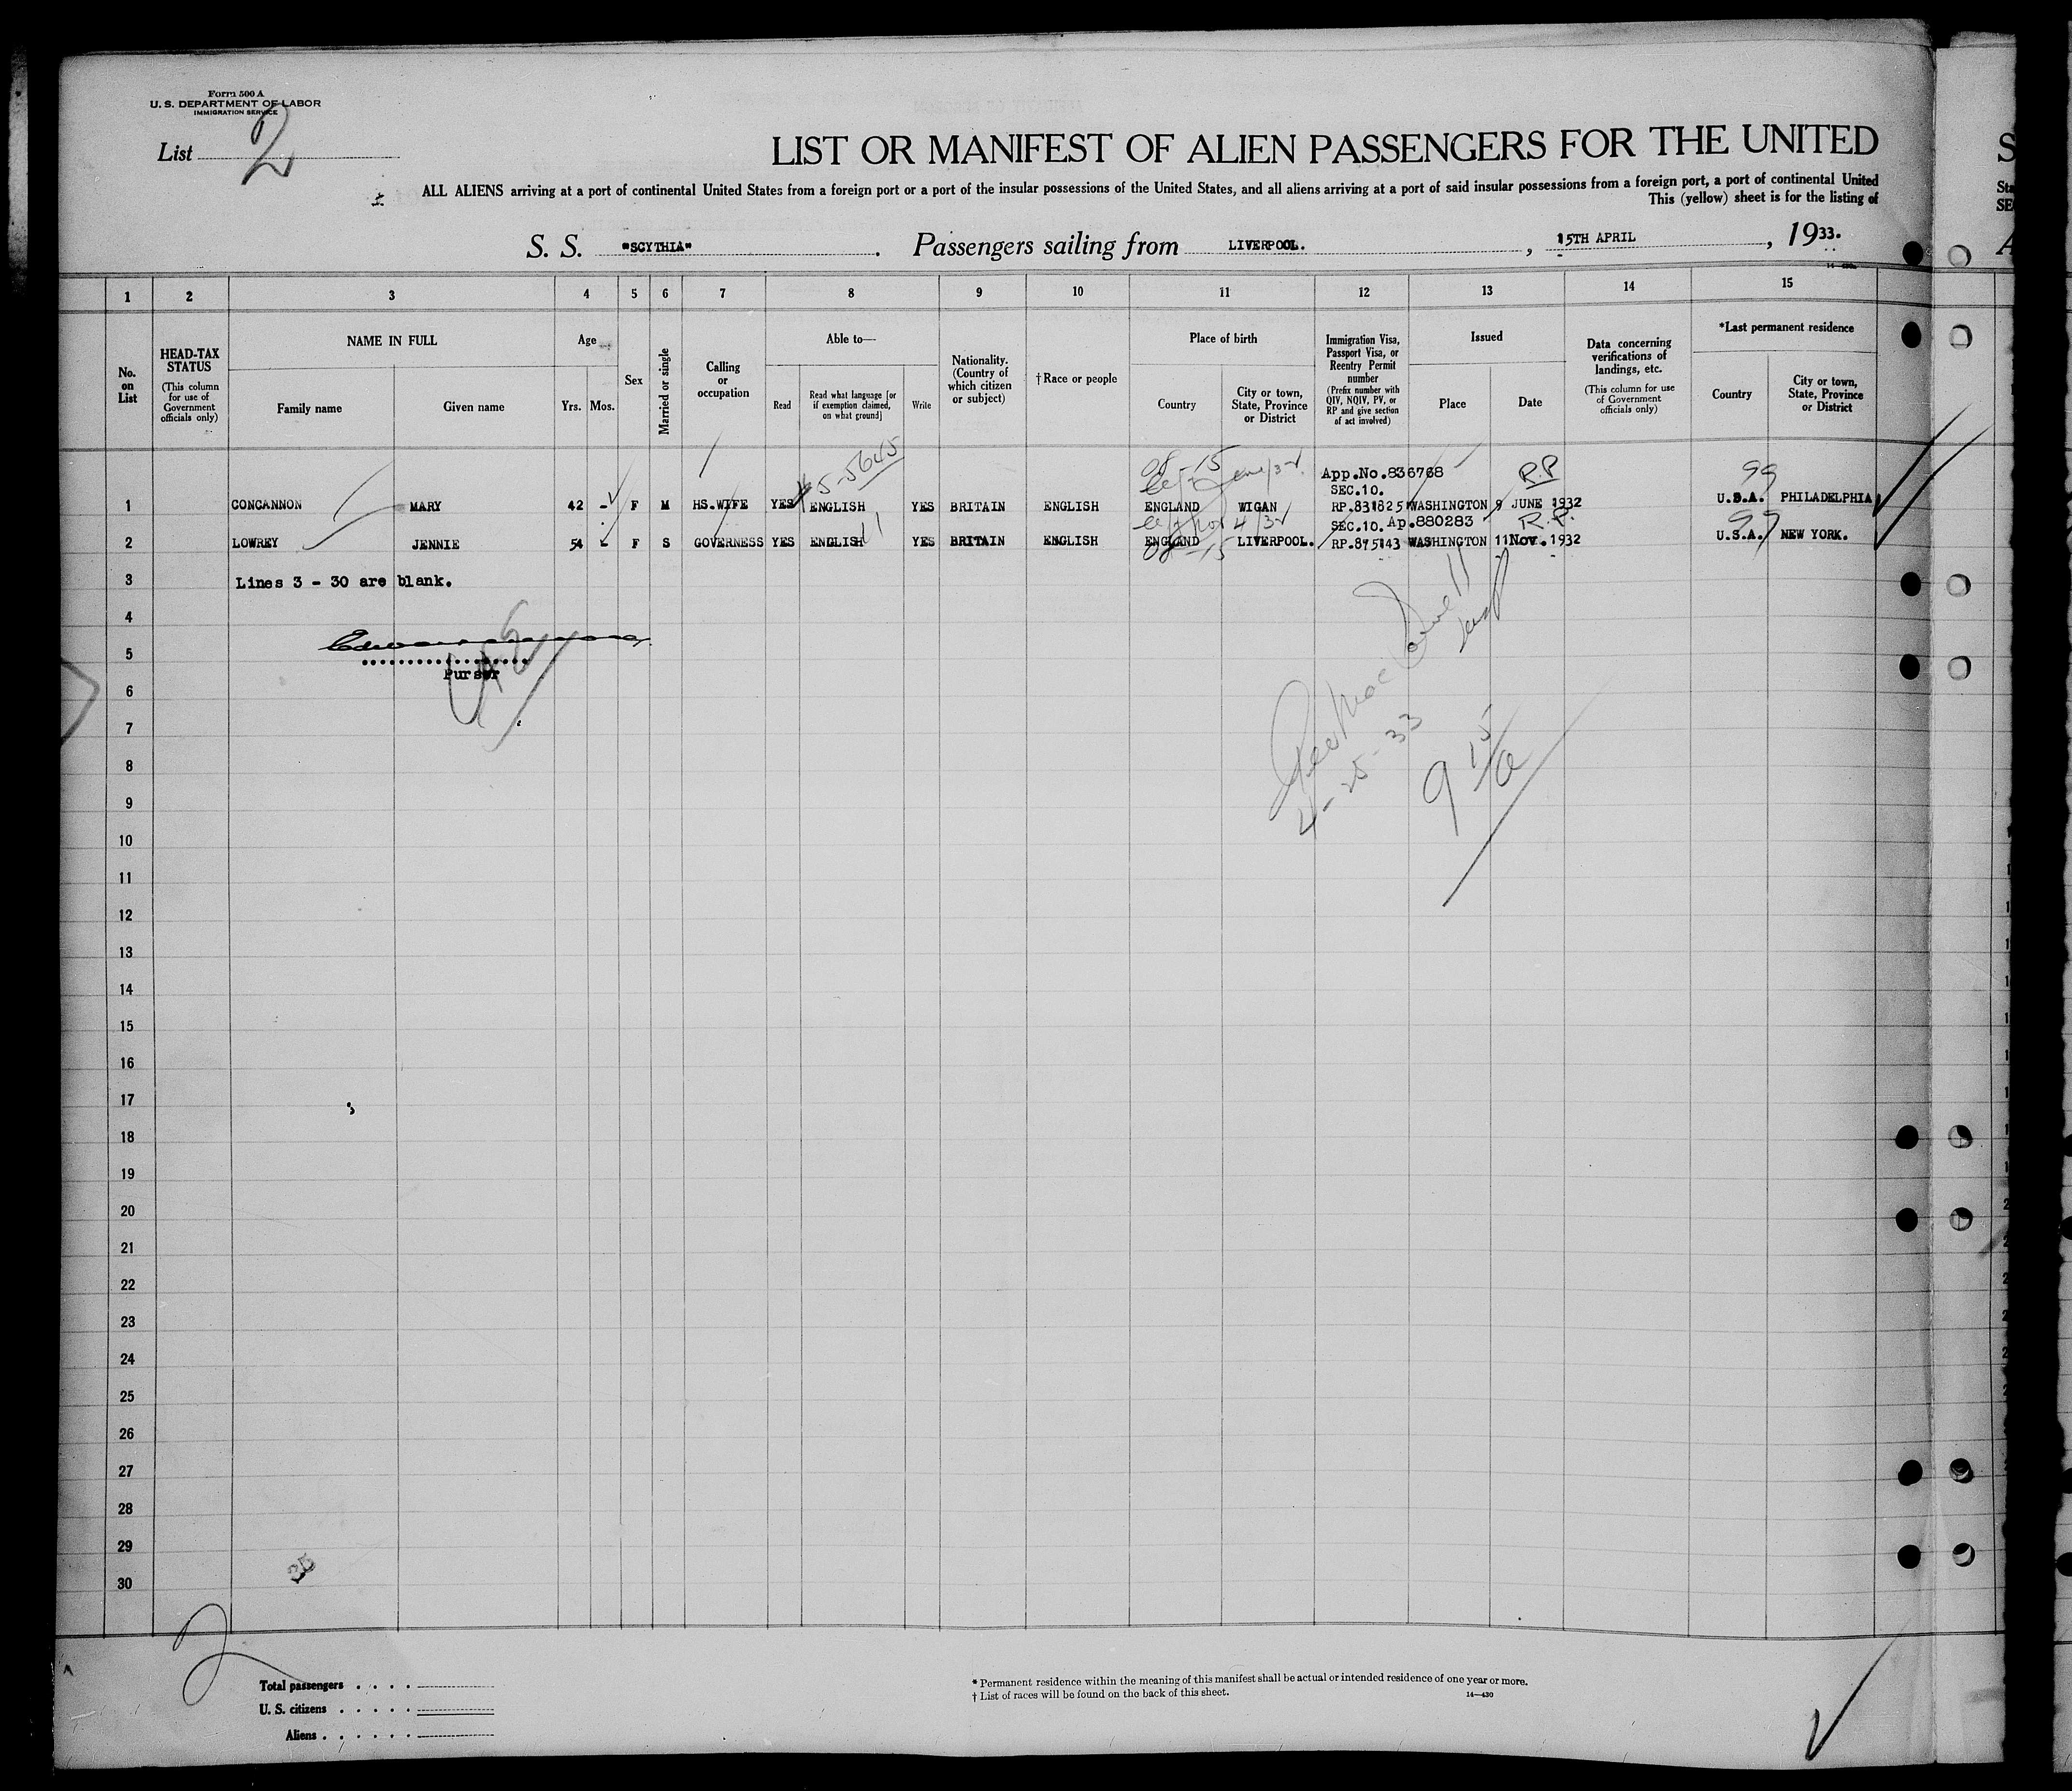 Form 500 A
U. S. DEPARTMENT OF LABOR
IMMIGRATION SERVICE
List 2
LIST OR MANIFEST OF ALIEN PASSENGERS FOR THE UNITED
ALL ALIENS arriving at a port of continental United States from a foreign port or a port of the insular possessions of the United States, and all aliens arriving at a port of said insular possessions from a foreign port, a port of continental United
This (yellow) sheet is for the listing of
S. S. "SCYTHIA". Passengers sailing from LIVERPOOL. , 15TH APRIL , 1933.
1 2 3 4 5 6 7 8 9 10 11 12 13 14 15
No. on List
HEAD-TAX STATUS (This column for use of Government officials only)
NAME IN FULL
Family name Given name
Age
Yrs. Mos.
Sex
Married or single
Calling or occupation
Able to—
Read Read what language [or if exemption claimed, on what ground] Write
Nationality. (Country of which citizen or subject)
†Race or people
Place of birth
Country City or town, State, Province or District
Immigration Visa, Passport Visa, or Reentry Permit number (Prefix number with QIV, NQIV, PV, or RP and give section of act involved)
Issued
Place Date
Data concerning verifications of landings, etc. (This column for use of Government officials only)
*Last permanent residence
Country City or town, State, Province or District
5-5645 08-15 App.No.836768 R.P 99
SEC.10.
1 CONCANNON MARY 42 - F M HS.WIFE YES ENGLISH YES BRITAIN ENGLISH ENGLAND WIGAN RP.831825 WASHINGTON 9 JUNE 1932 U.S.A. PHILADELPHIA
SEC.10. Ap.880283 R.P. 99
2 LOWREY JENNIE 54 - F S GOVERNESS YES ENGLISH YES BRITAIN ENGLISH ENGLAND LIVERPOOL. RP.875143 WASHINGTON 11 Nov. 1932 U.S.A. NEW YORK.
08-15
3 Lines 3 - 30 are blank.
4
5
Purser
6
7
4-25-33
9 15/a
8
9
10
11
12
13
14
15
16
17
18
19
20
21
22
23
24
25
26
27
28
29
30
2
Total passengers
U. S. citizens
Aliens
* Permanent residence within the meaning of this manifest shall be actual or intended residence of one year or more.
† List of races will be found on the back of this sheet.
14—430